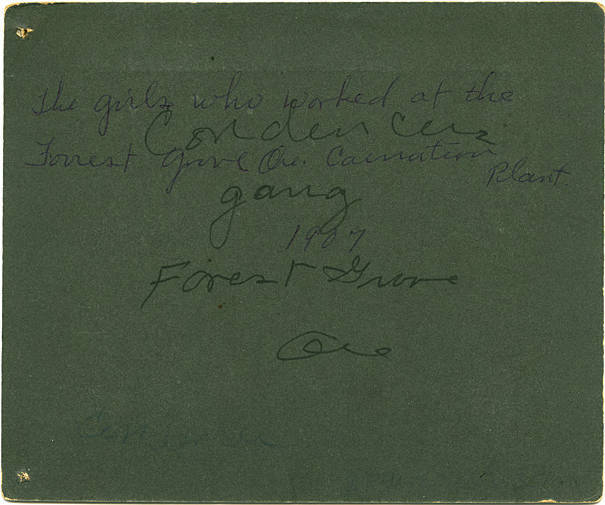 The girls who worked at the
Condencers
Forrest Grove Ore. Carnation
Plant
gang
1907
Forest Grove
Ore